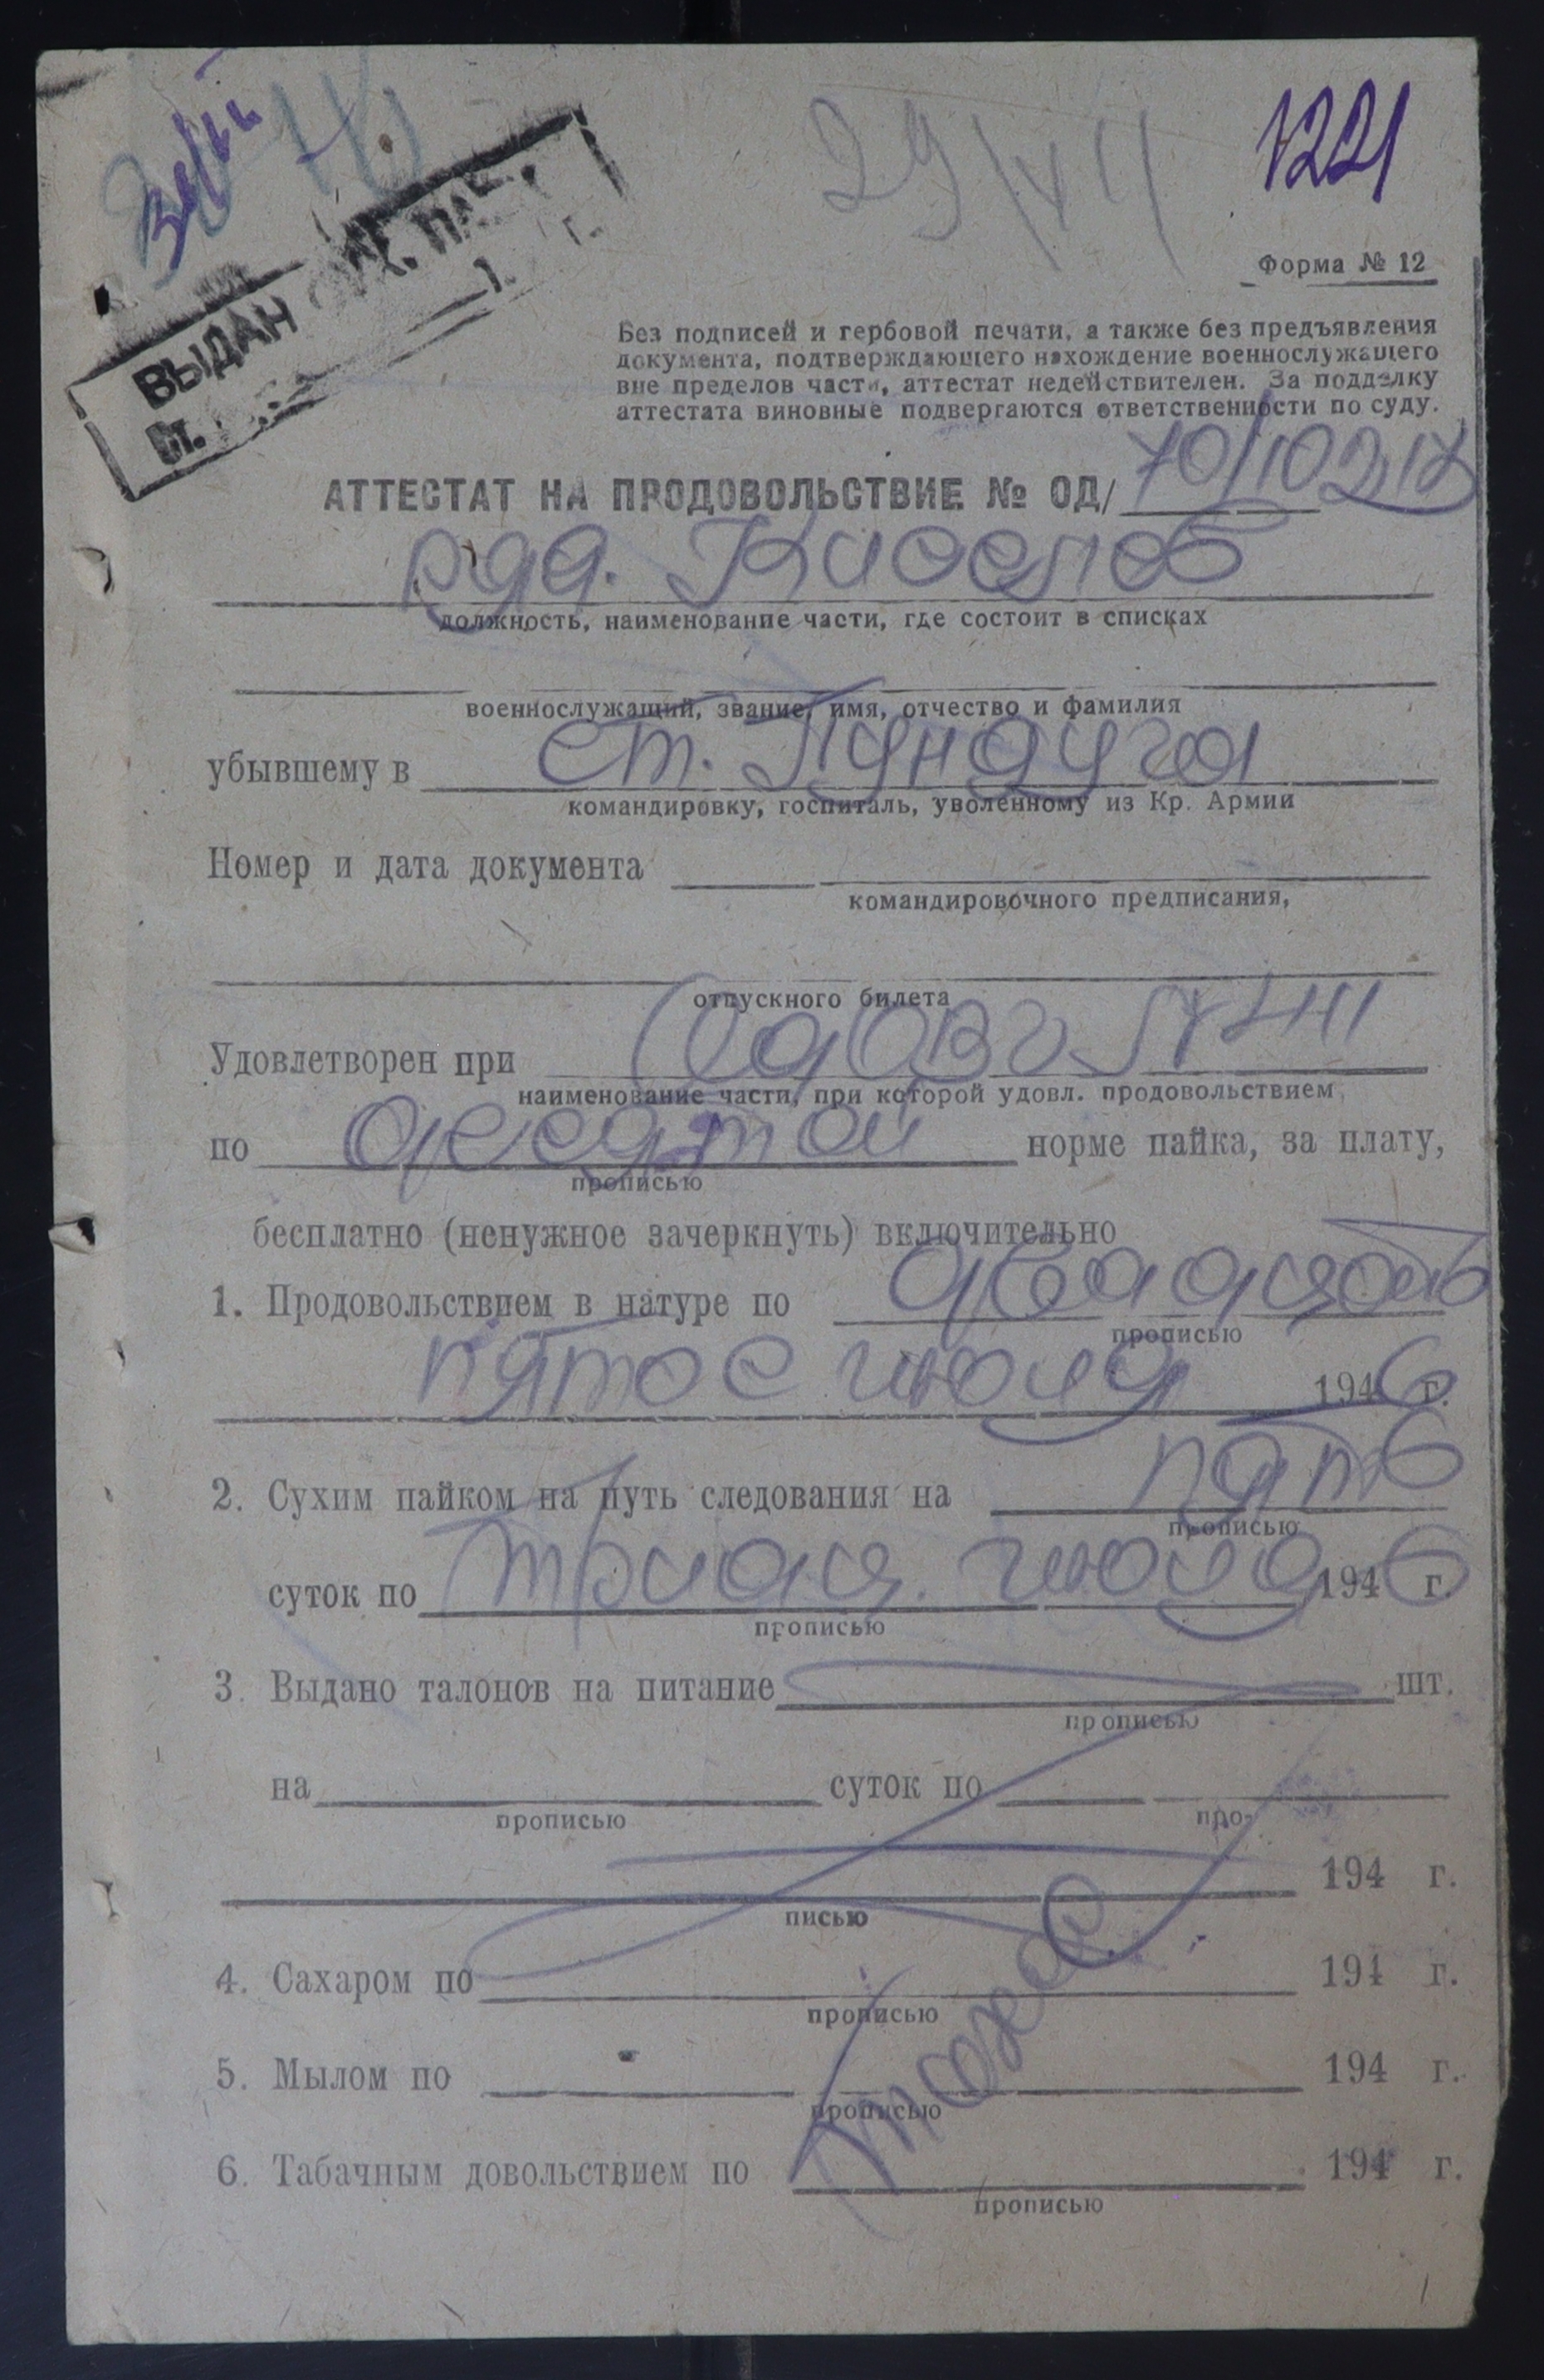 1221
29/VII
Форма № 12
ВЫДАН СУХ. ПАЕК
Без подписей и гербовой печати, а также без предъявления
документа, подтверждающего нахождение военнослужащего
вне пределов части, аттестат недействителен. За подделку
аттестата виновные подвергаются ответственности по суду.
АТТЕСТАТ НА ПРОДОВОЛЬСТВИЕ № ОД/ 70/10217
ряд. Киселев
должность, наименование части, где состоит в списках
военнослужащий, звание, имя, отчество и фамилия
убывшему в ст. Пундуга
командировку, госпиталь, уволенному из Кр. Армии
Номер и дата документа
командировочного предписания,
отпускного билета
Удовлетворен при
наименование части, при которой удовл. продовольствием
по десятой норме пайка, за плату,
прописью
бесплатно (ненужное зачеркнуть) включительно
1. Продовольствием в натуре по двадцать
прописью
пятое июля 1946 г.
2. Сухим пайком на путь следования на пять
прописью
суток по тридц. июля 1946 г.
прописью
3. Выдано талонов на питание шт.
прописью
на суток по
прописью про-
194 г.
писью
4. Сахаром по 194 г.
прописью
5. Мылом по 194 г.
прописью
тоже
6. Табачным довольствием по 194 г.
прописью